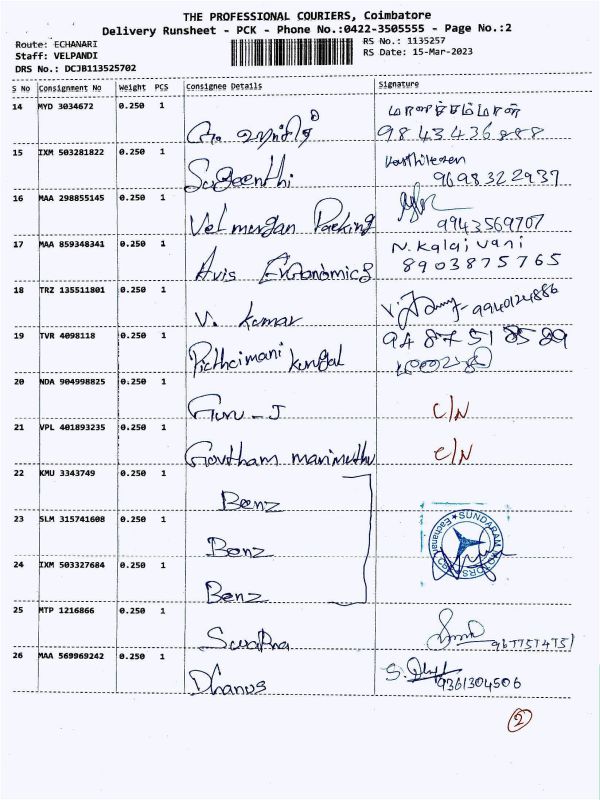 THE PROFESSIONAL COURIERS, Coimbatore
Delivery Runsheet - PCK - Phone No.:0422-3505555 - Page No.:2
Route: ECHANARI
Staff: VELPANDI
DRS No.: DCJB113525702
RS No.: 1135257
RS Date: 15-Mar-2023
S No Consignment No Weight PCS Consignee Details Signature
14 MYD 3034672 0.250 1
9843436888
15 IXM 503281822 0.250 1 Sugeenthi Karthikesen
9698322937
16 MAA 298855145 0.250 1 Vel murgan Packing
9943569707
17 MAA 859348341 0.250 1 Avis Ergonomics N. Kalaivani
8903875765
18 TRZ 135511801 0.250 1 V. Kumar 9940124886
19 TVR 4098118 0.250 1 Pitchaimani Kungal 9487518589
20 NDA 904998825 0.250 1 Guru - J C/N
21 VPL 401893235 0.250 1 Govtham marimuthu C/N
22 KMU 3343749 0.250 1 Benz
23 SLM 315741608 0.250 1 Benz SUNDARAM MOTORS
24 IXM 503327684 0.250 1 Benz
25 MTP 1216866 0.250 1 Swarna
26 MAA 569969242 0.250 1 Dhanus 9361304506
2